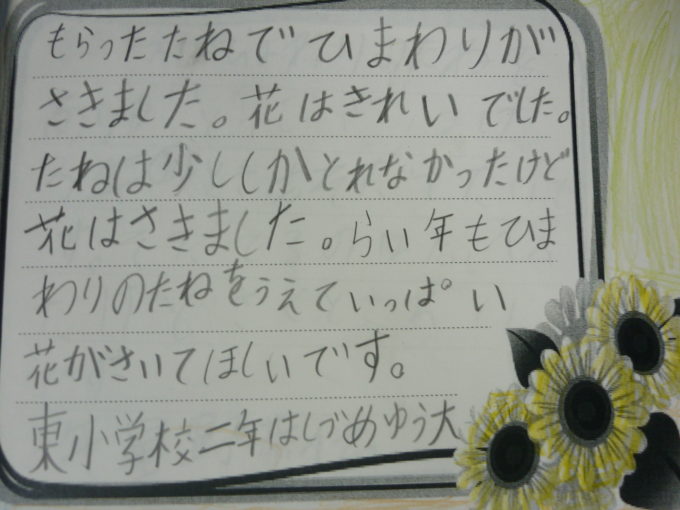 もらったたねでひまわりが
さきました。花はきれいでした。
たねは少ししかとれなかったけど
花はさきました。らい年もひま
わりのたねをうえていっぱい
花がさいてほしいです。
東小学校二年はしづめゆう大